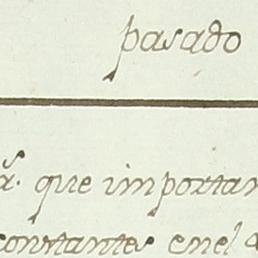 pasado
a. que importan
constantes enel